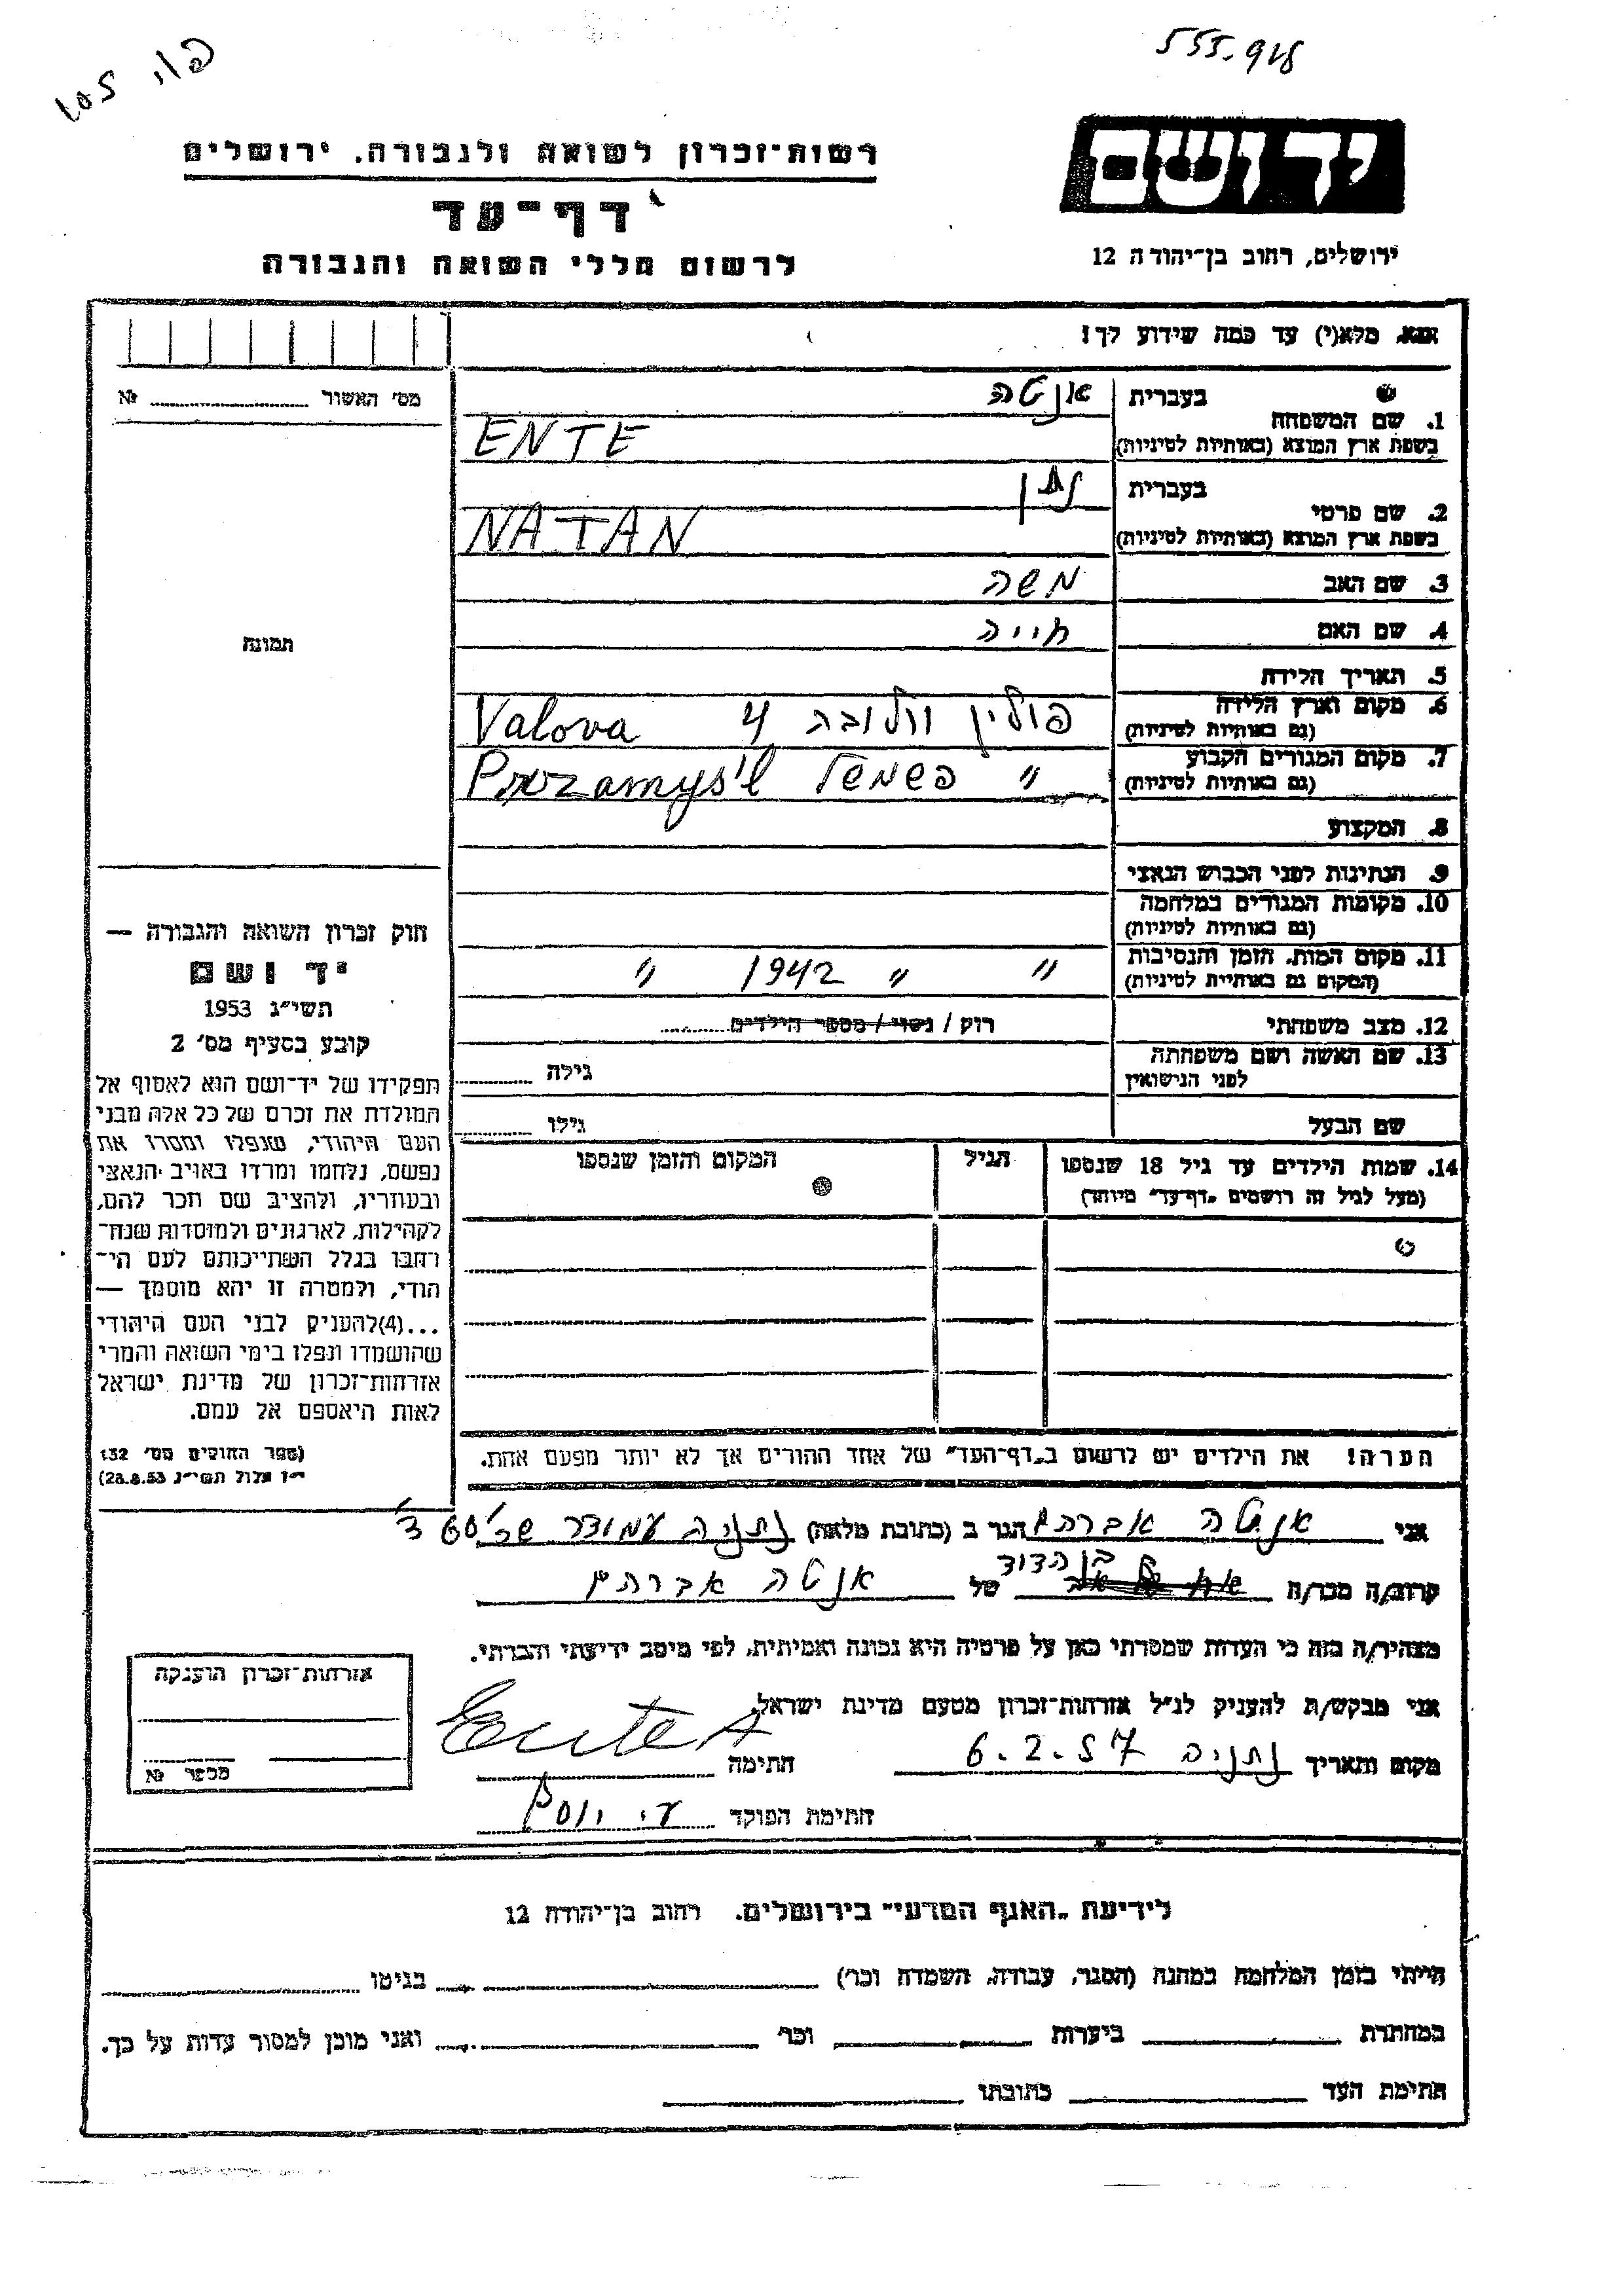 555.918
רשות־זכרון לשואה ולגבורה. ירושלים
דף־עד
לרשום חללי השואה והגבורה
יד ושם
ירושלים, רחוב בן־יהודה 12
אנא, מלא(י) עד כמה שידוע לך!
מס׳ האשור №
1. שם המשפחה
בעברית אנטה
בשפת ארץ המוצא (באותיות לטיניות) ENTE
2. שם פרטי
בעברית נתן
בשפת ארץ המוצא (באותיות לטיניות) NATAN
3. שם האב משה
4. שם האם חייה
5. תאריך הלידה
6. מקום וארץ הלידה פולין וולובה 4 Valova
(גם באותיות לטיניות)
7. מקום המגורים הקבוע " פשמשל Przamyśl
(גם באותיות לטיניות)
8. המקצוע
9. הנתינות לפני הכבוש הנאצי
10. מקומות המגורים במלחמה
(גם באותיות לטיניות)
11. מקום המות, הזמן והנסיבות " " 1942 "
(המקום גם באותיות לטיניות)
12. מצב משפחתי רוק / נשוי / מספר הילדים
13. שם האשה ושם משפחתה גילה
לפני הנישואין
שם הבעל גילו
14. שמות הילדים עד גיל 18 שנספו הגיל המקום והזמן שנספו
(מעל לגיל זה רושמים „דף־עד" מיוחד)
הערה! את הילדים יש לרשום ב„דף־העד" של אחד ההורים אך לא יותר מפעם אחת.
תמונה
חוק זכרון השואה והגבורה —
יד ושם
תשי״ג 1953
קובע בסעיף מס׳ 2
תפקידו של יד־ושם הוא לאסוף אל
המולדת את זכרם של כל אלה מבני
העם היהודי, שנפלו ומסרו את
נפשם, נלחמו ומרדו באויב הנאצי
ובעוזריו, ולהציב שם וזכר להם,
לקהילות, לארגונים ולמוסדות שנח־
רחבו בגלל השתייכותם לעם הי־
הודי, ולמטרה זו יהא מוסמך —
...(4)להעניק לבני העם היהודי
שהושמדו ונפלו בימי השואה והמרי
אזרחות־זכרון של מדינת ישראל
לאות היאספם אל עמם.
(ספר החוקים מס׳ 132
י״ז אלול תשי״ג 28.8.53)
אני אנטה אברהם הגר ב (כתובת מלאה) נתניה עמודר 60
קרוב/ה מכר/ה בן הדוד של אנטה אברהם
מצהיר/ה בזה כי העדות שמסרתי כאן על פרטיה היא נכונה ואמיתית, לפי מיטב ידיעתי והכרתי.
אני מבקש/ת להעניק לנ״ל אזרחות־זכרון מטעם מדינת ישראל.
מקום ותאריך נתניה 6.2.57 חתימה Ente A
חתימת הפוקד
אזרחות־זכרון הוענקה
מספר №
לידיעת „האגף המדעי" בירושלים. רחוב בן־יהודה 12
הייתי בזמן המלחמה במחנה (הסגר, עבודה, השמדה וכו׳) בגיטו
במחתרת ביערות וכו׳ ואני מוכן למסור עדות על כך.
חתימת העד כתובתו